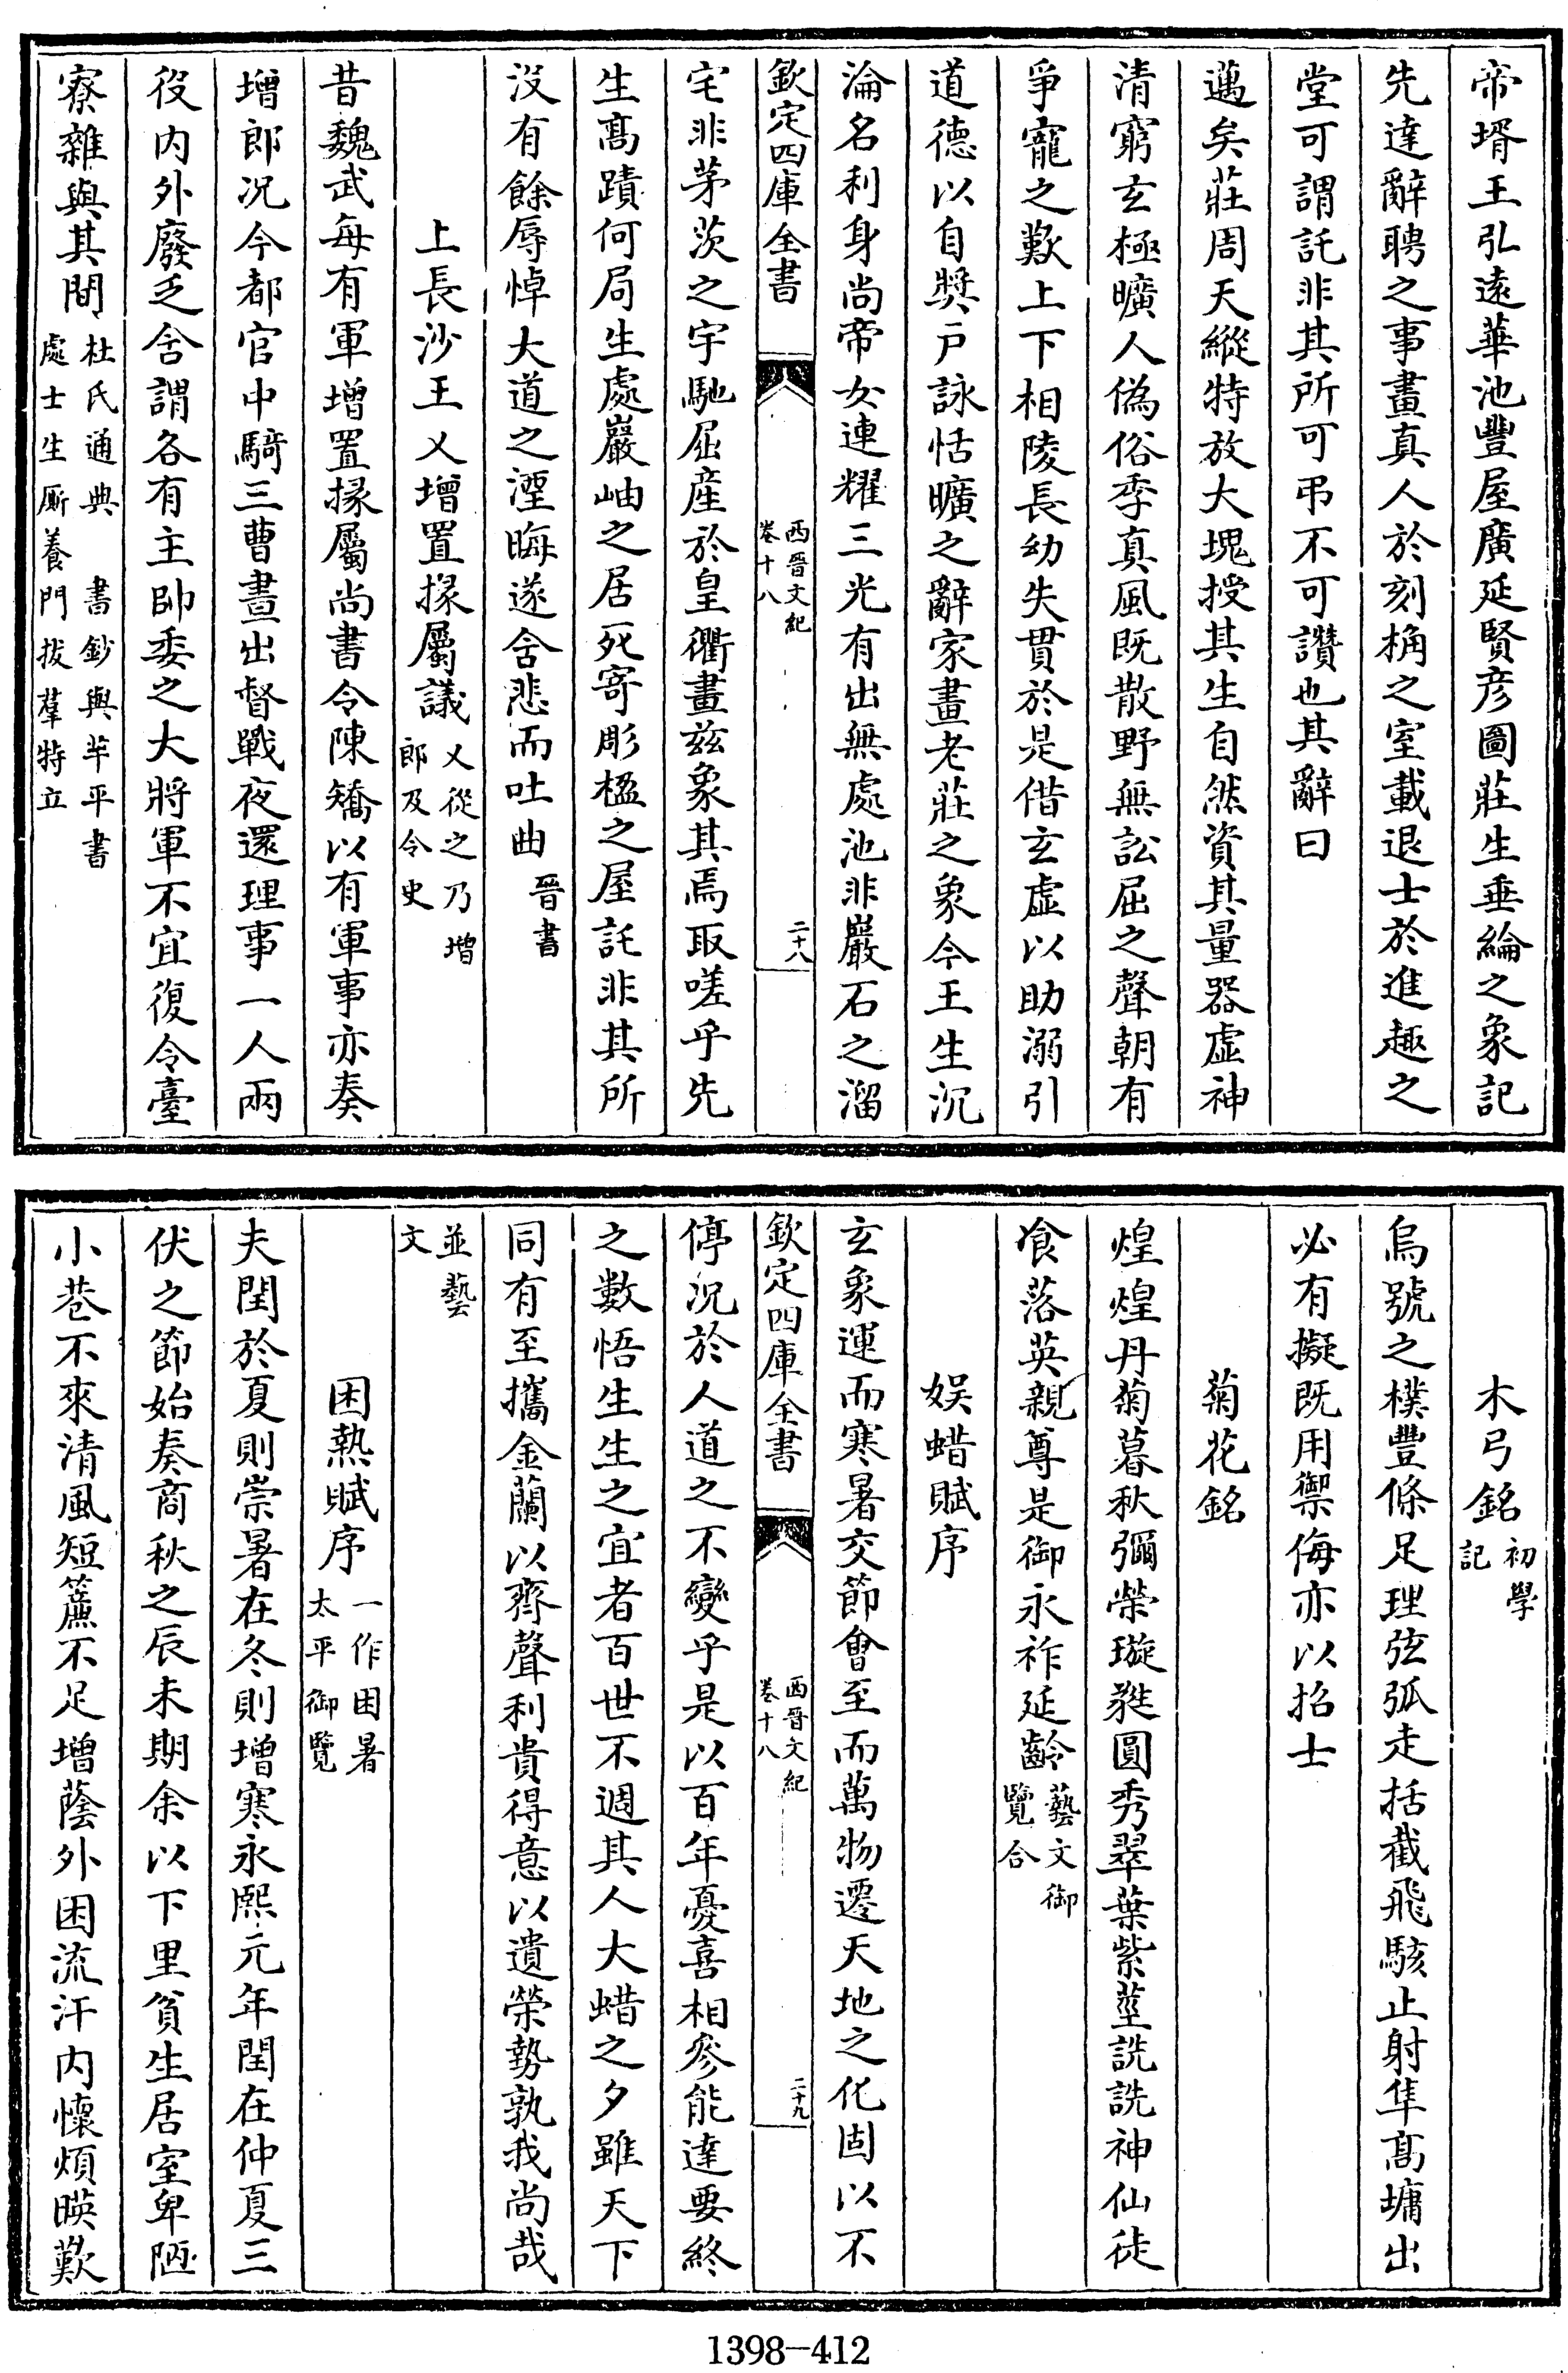 帝壻王弘遠華池豐屋廣延賢彦圖莊生垂綸之象記
先達辭聘之事畫真人於刻桷之室載退士於進趣之
堂可謂託非其所可弔不可讚也其辭曰
邁矣莊周天縱特放大塊授其生自然資其量器虛神
清窮玄極曠人偽俗季真風既散野無訟屈之聲朝有
爭寵之歎上下相陵長幼失貫於是借玄虛以助溺引
道德以自奬戸詠恬曠之辭家畫老莊之象今王生沉
淪名利身尚帝女連耀三光有出無處池非巖石之溜
欽定四庫全書
西晉文紀
卷十八
二十八
宅非茅茨之宇馳屈産於皇衢畫兹象其焉取嗟乎先
生髙蹟何局生處巖岫之居死寄彫楹之屋託非其所
沒有餘辱悼大道之湮晦遂含悲而吐曲晉書
上長沙王乂增置掾屬議乂從之乃增郎及令史
昔魏武每有軍增置掾屬尚書令陳矯以有軍事亦奏
增郎况今都官中騎三曹晝出督戰夜還理事一人兩
役内外廢乏含謂各有主帥委之大將軍不宜復令臺
寮雜與其間杜氏通典 書鈔與华平書處士生厮養門拔羣特立
木弓銘初學記
烏號之樸豐條足理弦弧走括截飛駭止射隼髙墉出
必有擬既用禦侮亦以招士
菊花銘
煌煌丹菊暮秋彌榮璇蕤圓秀翠葉紫莖詵詵神仙徒
飡落英親尊是御永祚延齡藝文御覽合
娱蜡賦序
玄象運而寒暑交節會至而萬物遷天地之化固以不
欽定四庫全書
西晉文紀
卷十八
二十九
停況於人道之不變乎是以百年憂喜相參能達要終
之數悟生生之宜者百世不週其人大蜡之夕雖天下
同有至攜金蘭以齊聲利貴得意以遺榮勢孰我尚哉
並藝文
困熱賦序一作困暑太平御覽
夫閏於夏則崇暑在冬則增寒永熙元年閏在仲夏三
伏之節始奏商秋之辰未期余以下里貧生居室卑陋
小巷不來清風短簷不足增蔭外困流汗内懷煩暎歎
1398—412